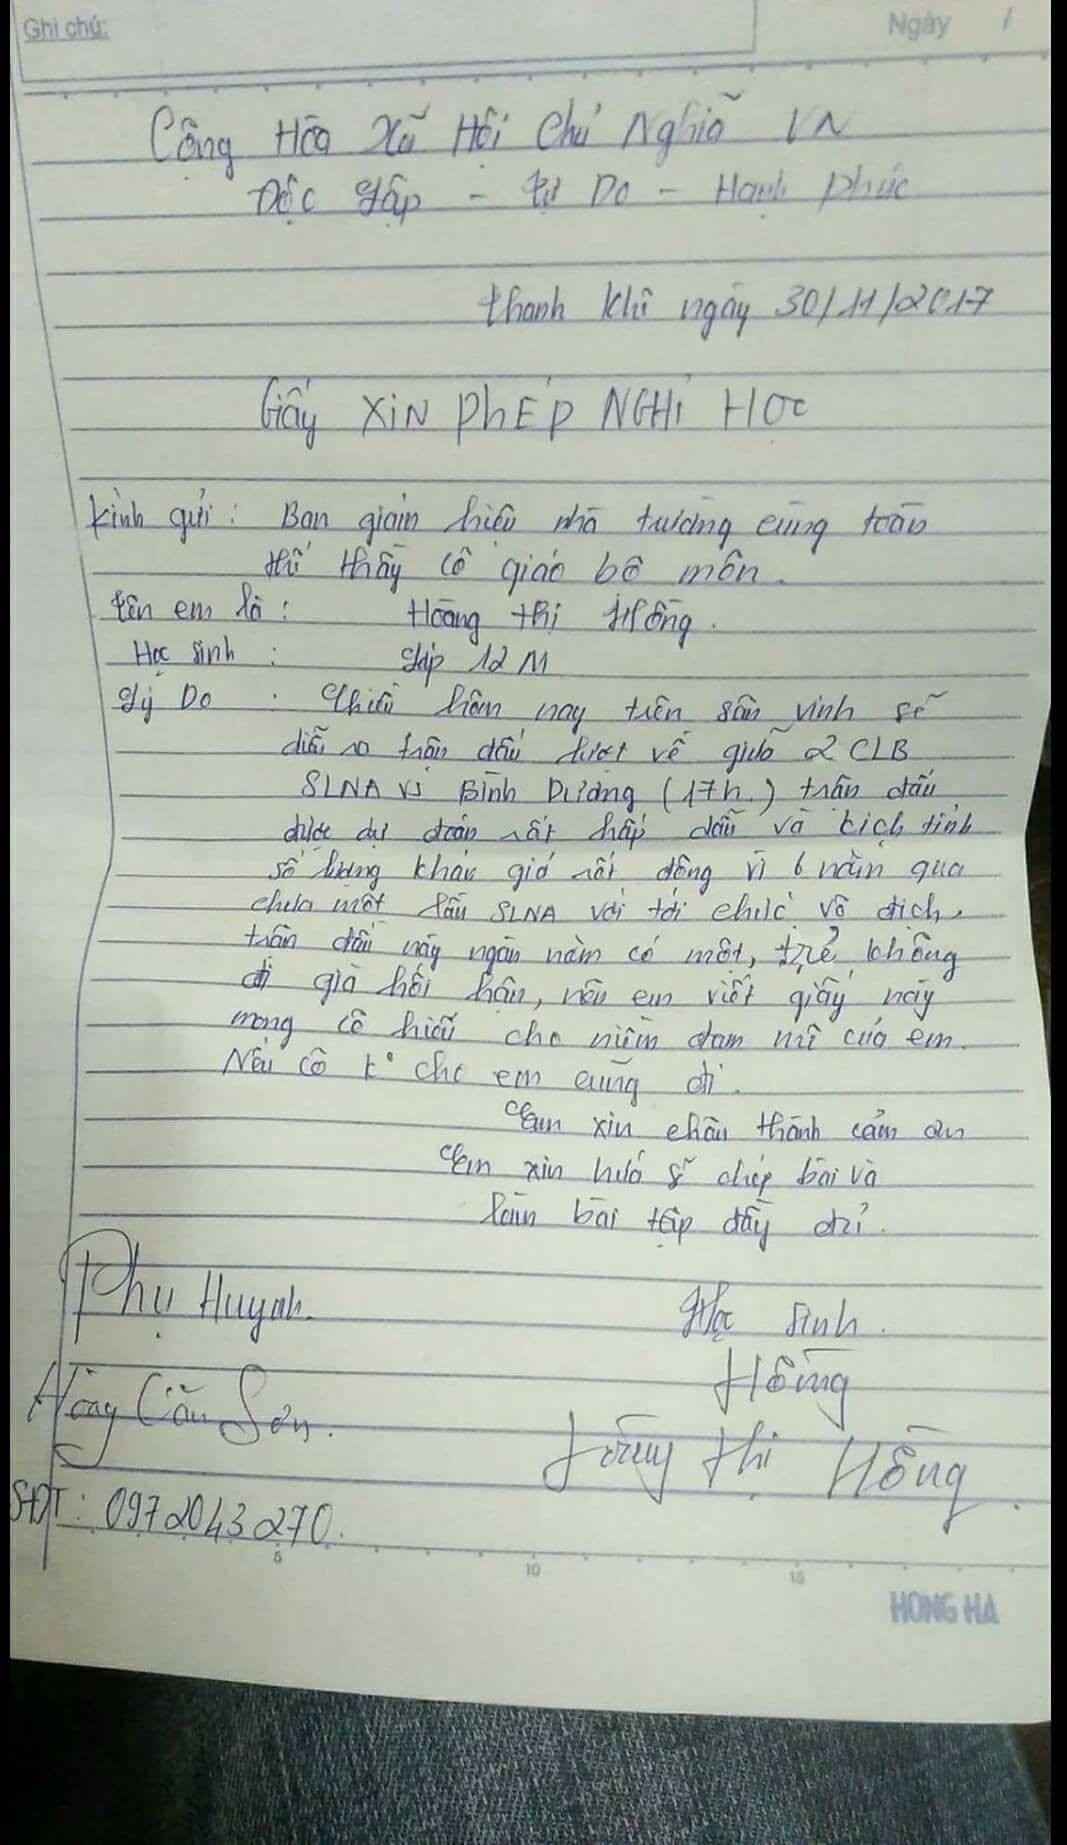 Ghi chú:
Ngày /
Cộng Hòa Xã Hội Chủ Nghĩa VN
Độc Lập - Tự Do - Hạnh phúc
thanh khê ngày 30/11/2017
Giấy XIN PHÉP NGHỈ HỌC
kính gửi : Ban giám hiệu nhà trường cùng toàn
thể thầy cô giáo bộ môn.
tên em là : Hoàng thị Hồng.
Học sinh : Lớp 12 M
Lý Do : Chiều hôm nay trên sân vinh sẽ
diễn ra trận đấu lượt về giữa 2 CLB
SLNA vs Bình Dương (17h.) trận đấu
được dự đoán rất hấp dẫn và kịch tính
số lượng khán giả rất đông vì 6 năm qua
chưa một lần SLNA với tới chức vô địch,
trận đấu này ngàn năm có một, trẻ không
đi già hối hận, nên em viết giấy này
mong cô hiểu cho niềm đam mê của em.
Nếu cô k° cho em cũng đi.
Em xin chân thành cảm ơn
Em xin hứa sẽ chép bài và
làm bài tập đầy đủ.
Phụ Huynh.
Học sinh.
Hồng
Hoàng Thị Hồng.
SĐT : 0972043270.
5 10 15
HONG HA